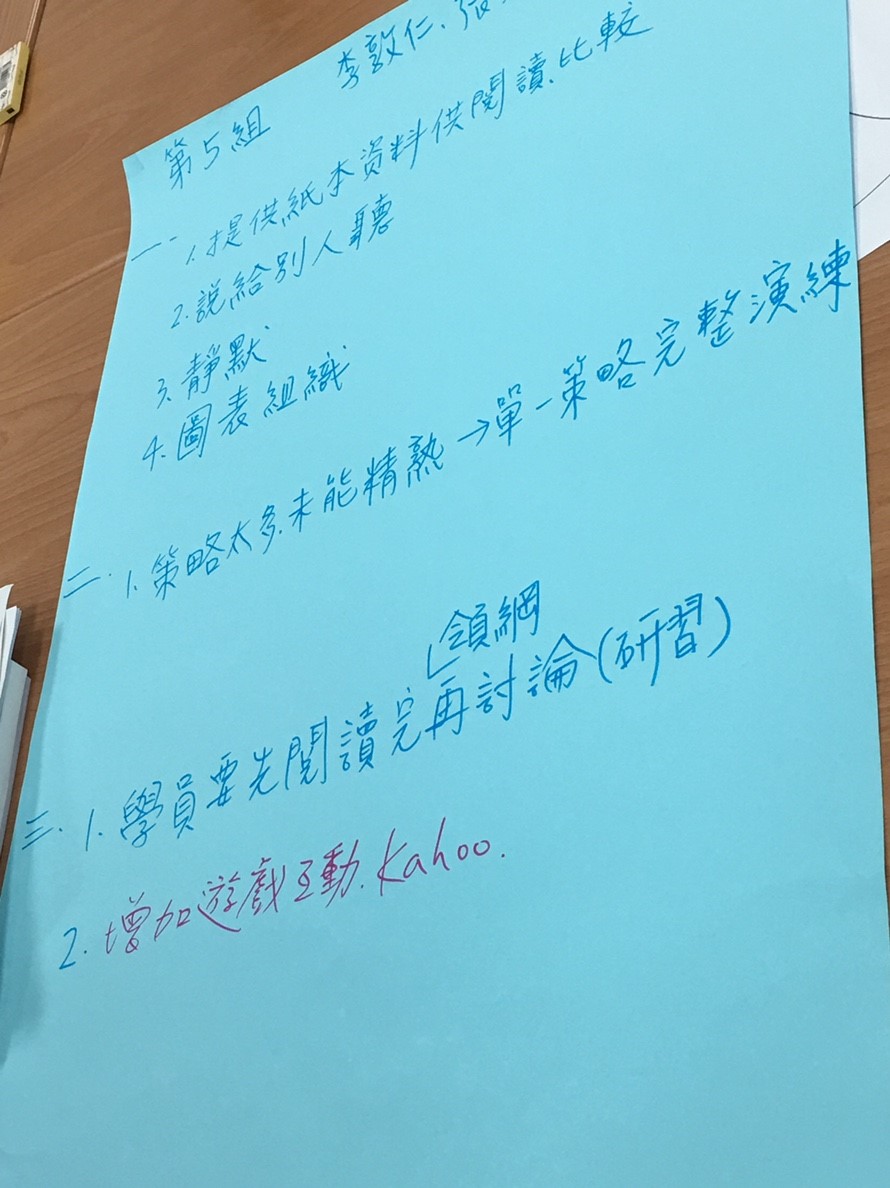 第5組 李敦仁、張
一、1.提供紙本資料供閱讀、比較
2.說給別人聽
3.靜默
4.圖表組織
二、1.策略太多,未能精熟→單一策略完整演練
領綱
三、1.學員要先閱讀完再討論(研習)
2.增加遊戲互動、Kahoo.